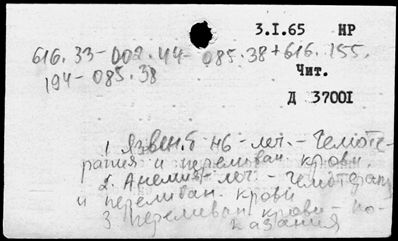 3.I.65 НР
616.33-002.44-085.38+616.155.
194-085.38
Чит.
Д 37001
1 Язвен. б-нь - леч. - Гемоте-
рапия и переливан. крови.
2. Анемия - леч. - гемотерап.
и переливан. крови
3 переливан. крови - по-
казания